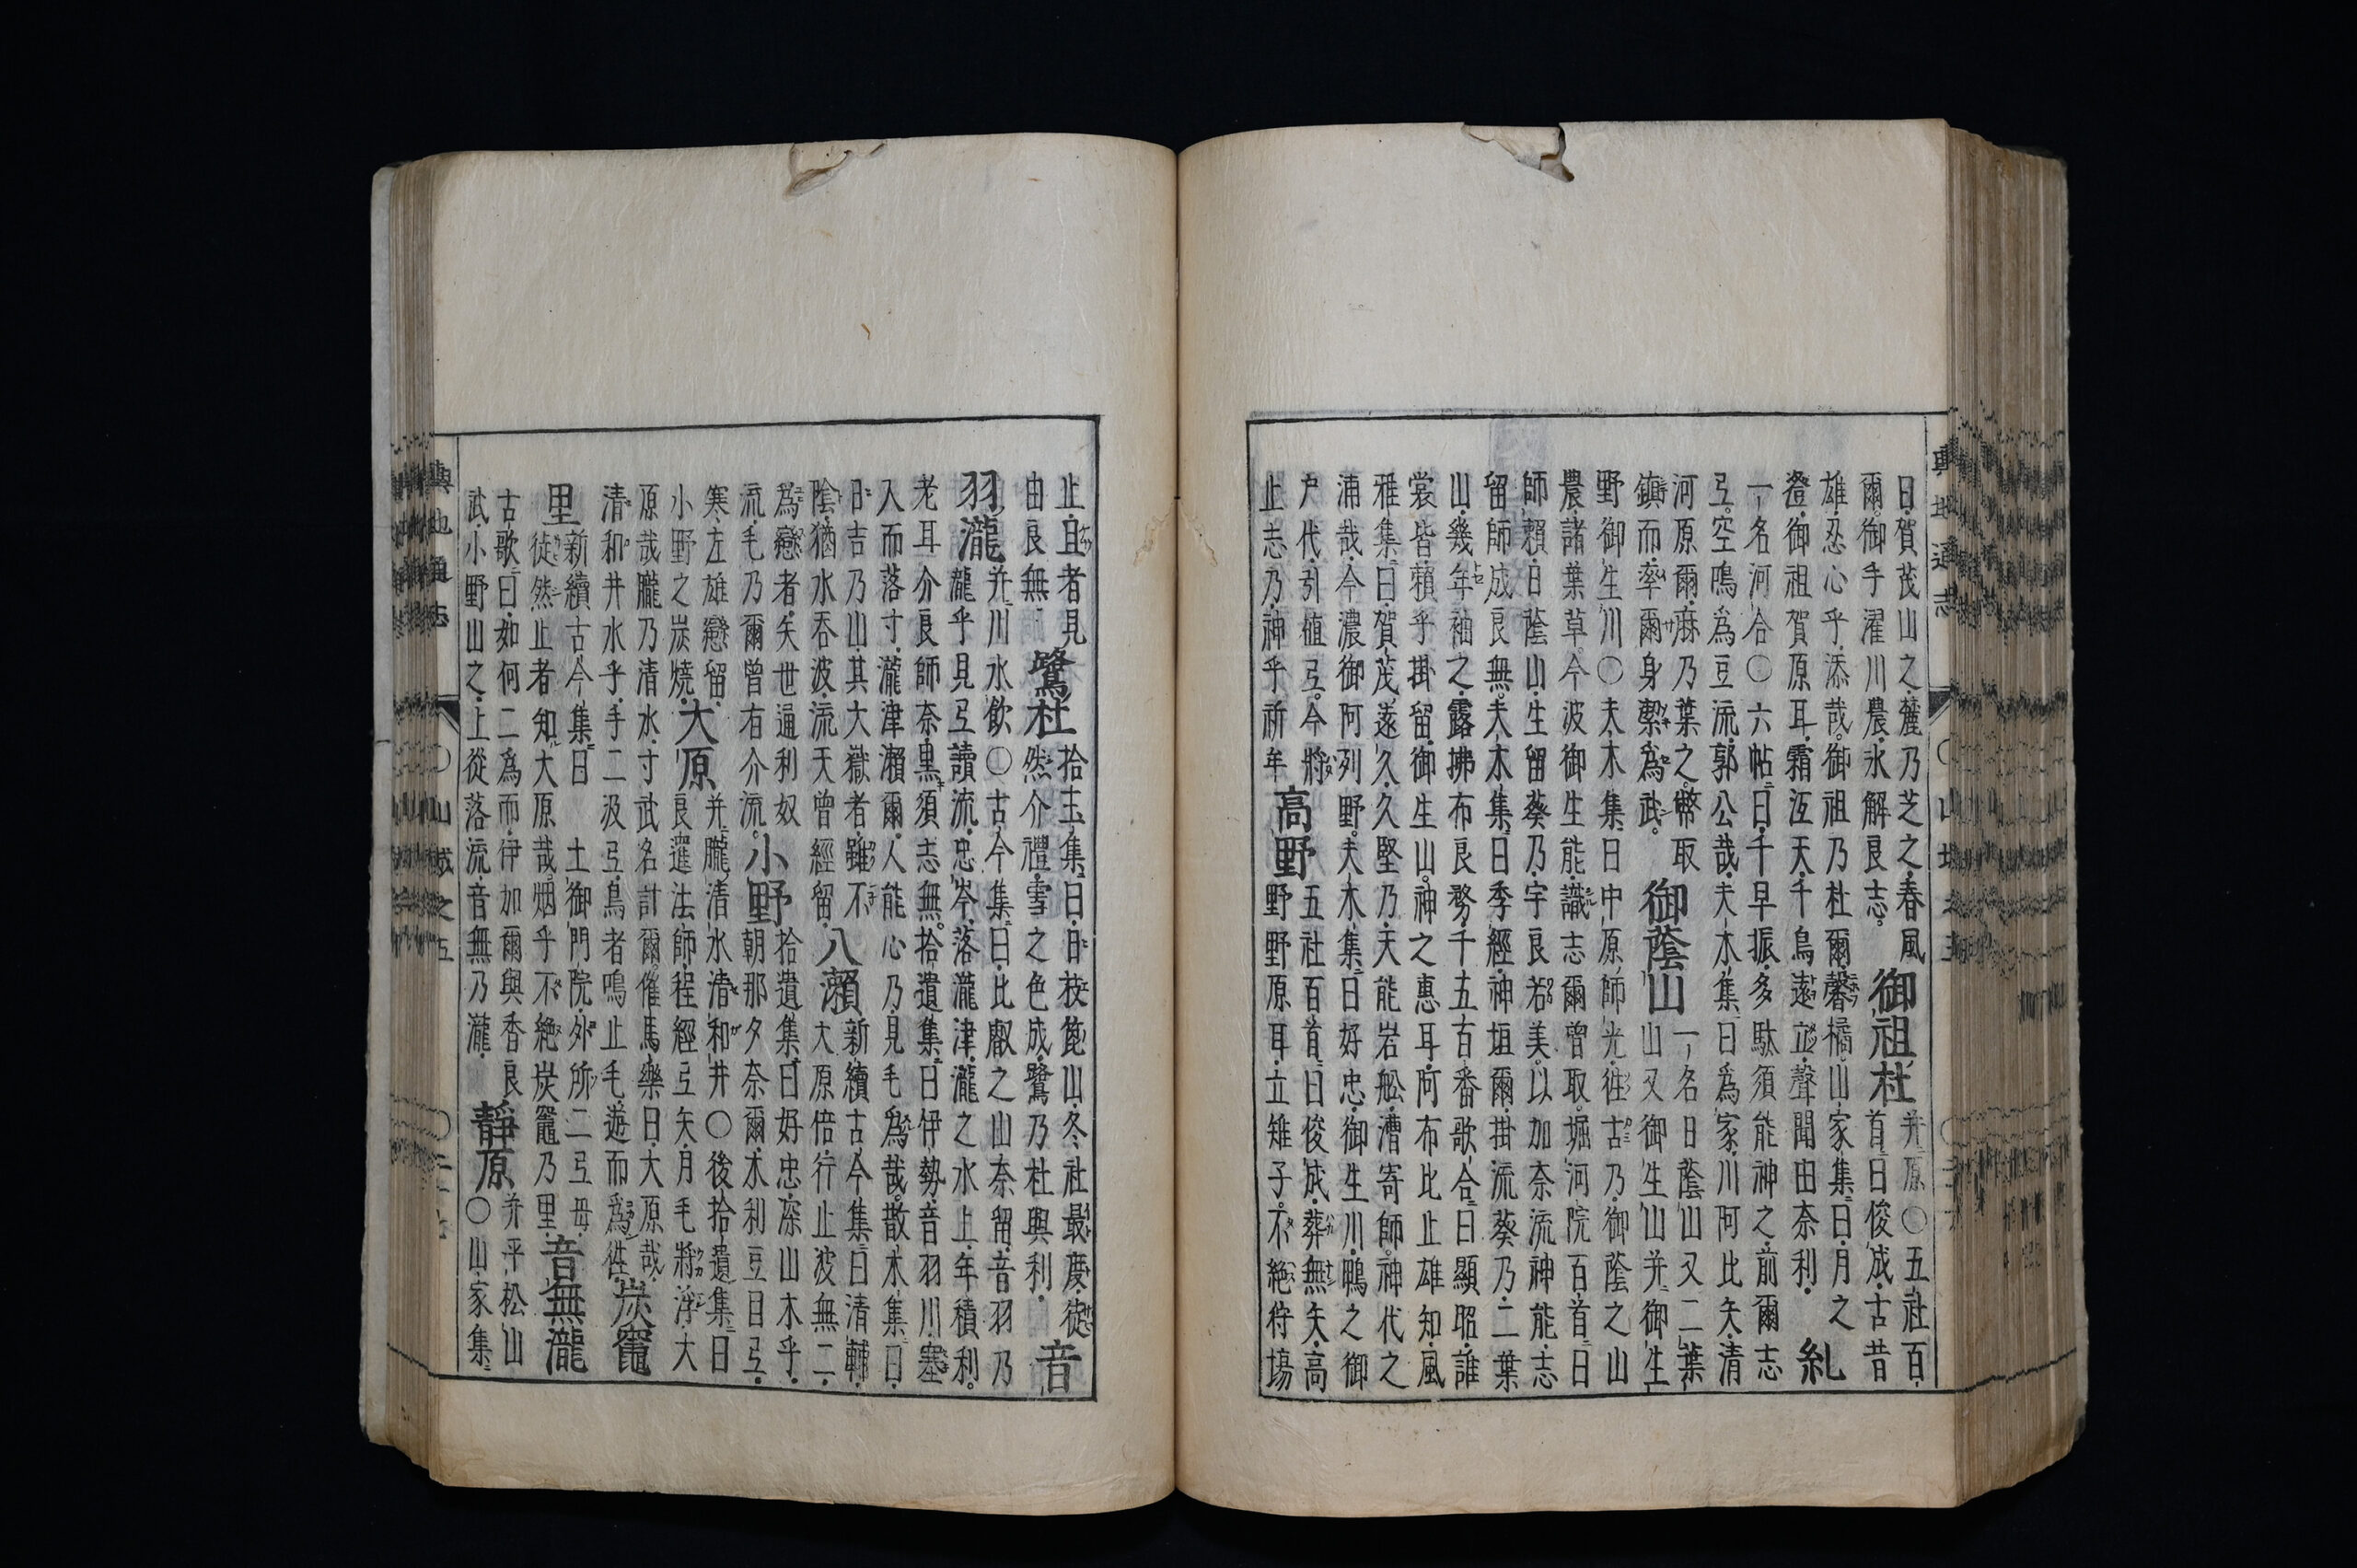 日賀茂山之麓乃芝之春風
爾御手濯川農氷解良志
御祖杜
并原〇五社百
首曰俊成古昔
雄忍心乎添哉御祖乃杜爾馨橘山家集曰月之
澄御祖賀原耳霜冱天千鳥遠立聲聞由奈利
糺
一名河合〇六帖曰千早振多駄須能神之前爾志
弖空鳴為豆流郭公哉夫木集曰為家川阿比矢清
河原爾麻乃葉之幣取
鎮而率爾身潔為武
御蔭山
一名日蔭山又二葉
山又御生山并御生
野御生川〇夫木集曰中原師光徃古乃御蔭之山
農諸葉草今波御生能識志爾曾取堀河院百首曰
師賴日蔭山生留葵乃宇良若美以加奈流神能志
留師成良無夫木集曰季經神垣爾掛流葵乃二葉
山幾年袖之露拂布良務千五百番歌合曰顯昭誰
裳皆賴乎掛留御生山神之惠耳阿布比止雄知風
雅集曰賀茂遂久久堅乃天能岩舩漕寄師神代之
浦哉今濃御阿列野夫木集曰好忠御生川鴨之御
戸代引植弖今將
止志乃神乎祈年
高野
五社百首曰俊成葬無矢高
野野原耳立雉子不絶狩場
止且者見
由良無
鷺杜
拾玉集曰日枝篦山冬社最度徒
然介禮雪之色成鷺乃杜與利
音
羽瀧
并川水飲〇古今集曰比叡之山奈留音羽乃
瀧乎見弖讀流忠岑落瀧津瀧之水上年積利
老耳介良師奈黒須志無拾遺集曰伊勢音羽川塞
入而落寸瀧津瀨爾人能心乃見毛為哉散木集曰
日吉乃山其大嶽者雖不
陰猶水吞波流天曾經留
八瀨
新續古今集曰清輔
大原倍行止波無二
為戀者矢世逼利奴
流毛乃爾曾右介流
小野
拾遺集曰好忠深山木乎
朝那夕奈爾木利豆曰弖
寒左雄戀留
小野之炭燒
大原
并朧清水淸和井〇後拾遺集曰
良暹法師程經弖矢月毛將浮大
原哉朧乃清水寸武名計爾催馬樂曰大原哉
清和井水乎手二汲弖鳥者鳴止毛遊而為徃
炭竈
里
新續古今集曰
徒然止者知大原哉烟乎不絶炭竈乃里
土御門院外所二弖毋
音無瀧
古歌曰如何二為而伊加爾與香良
武小野山之上從落流音無乃瀧
靜原
并平松山
〇山家集
輿地通志
〇山城之五